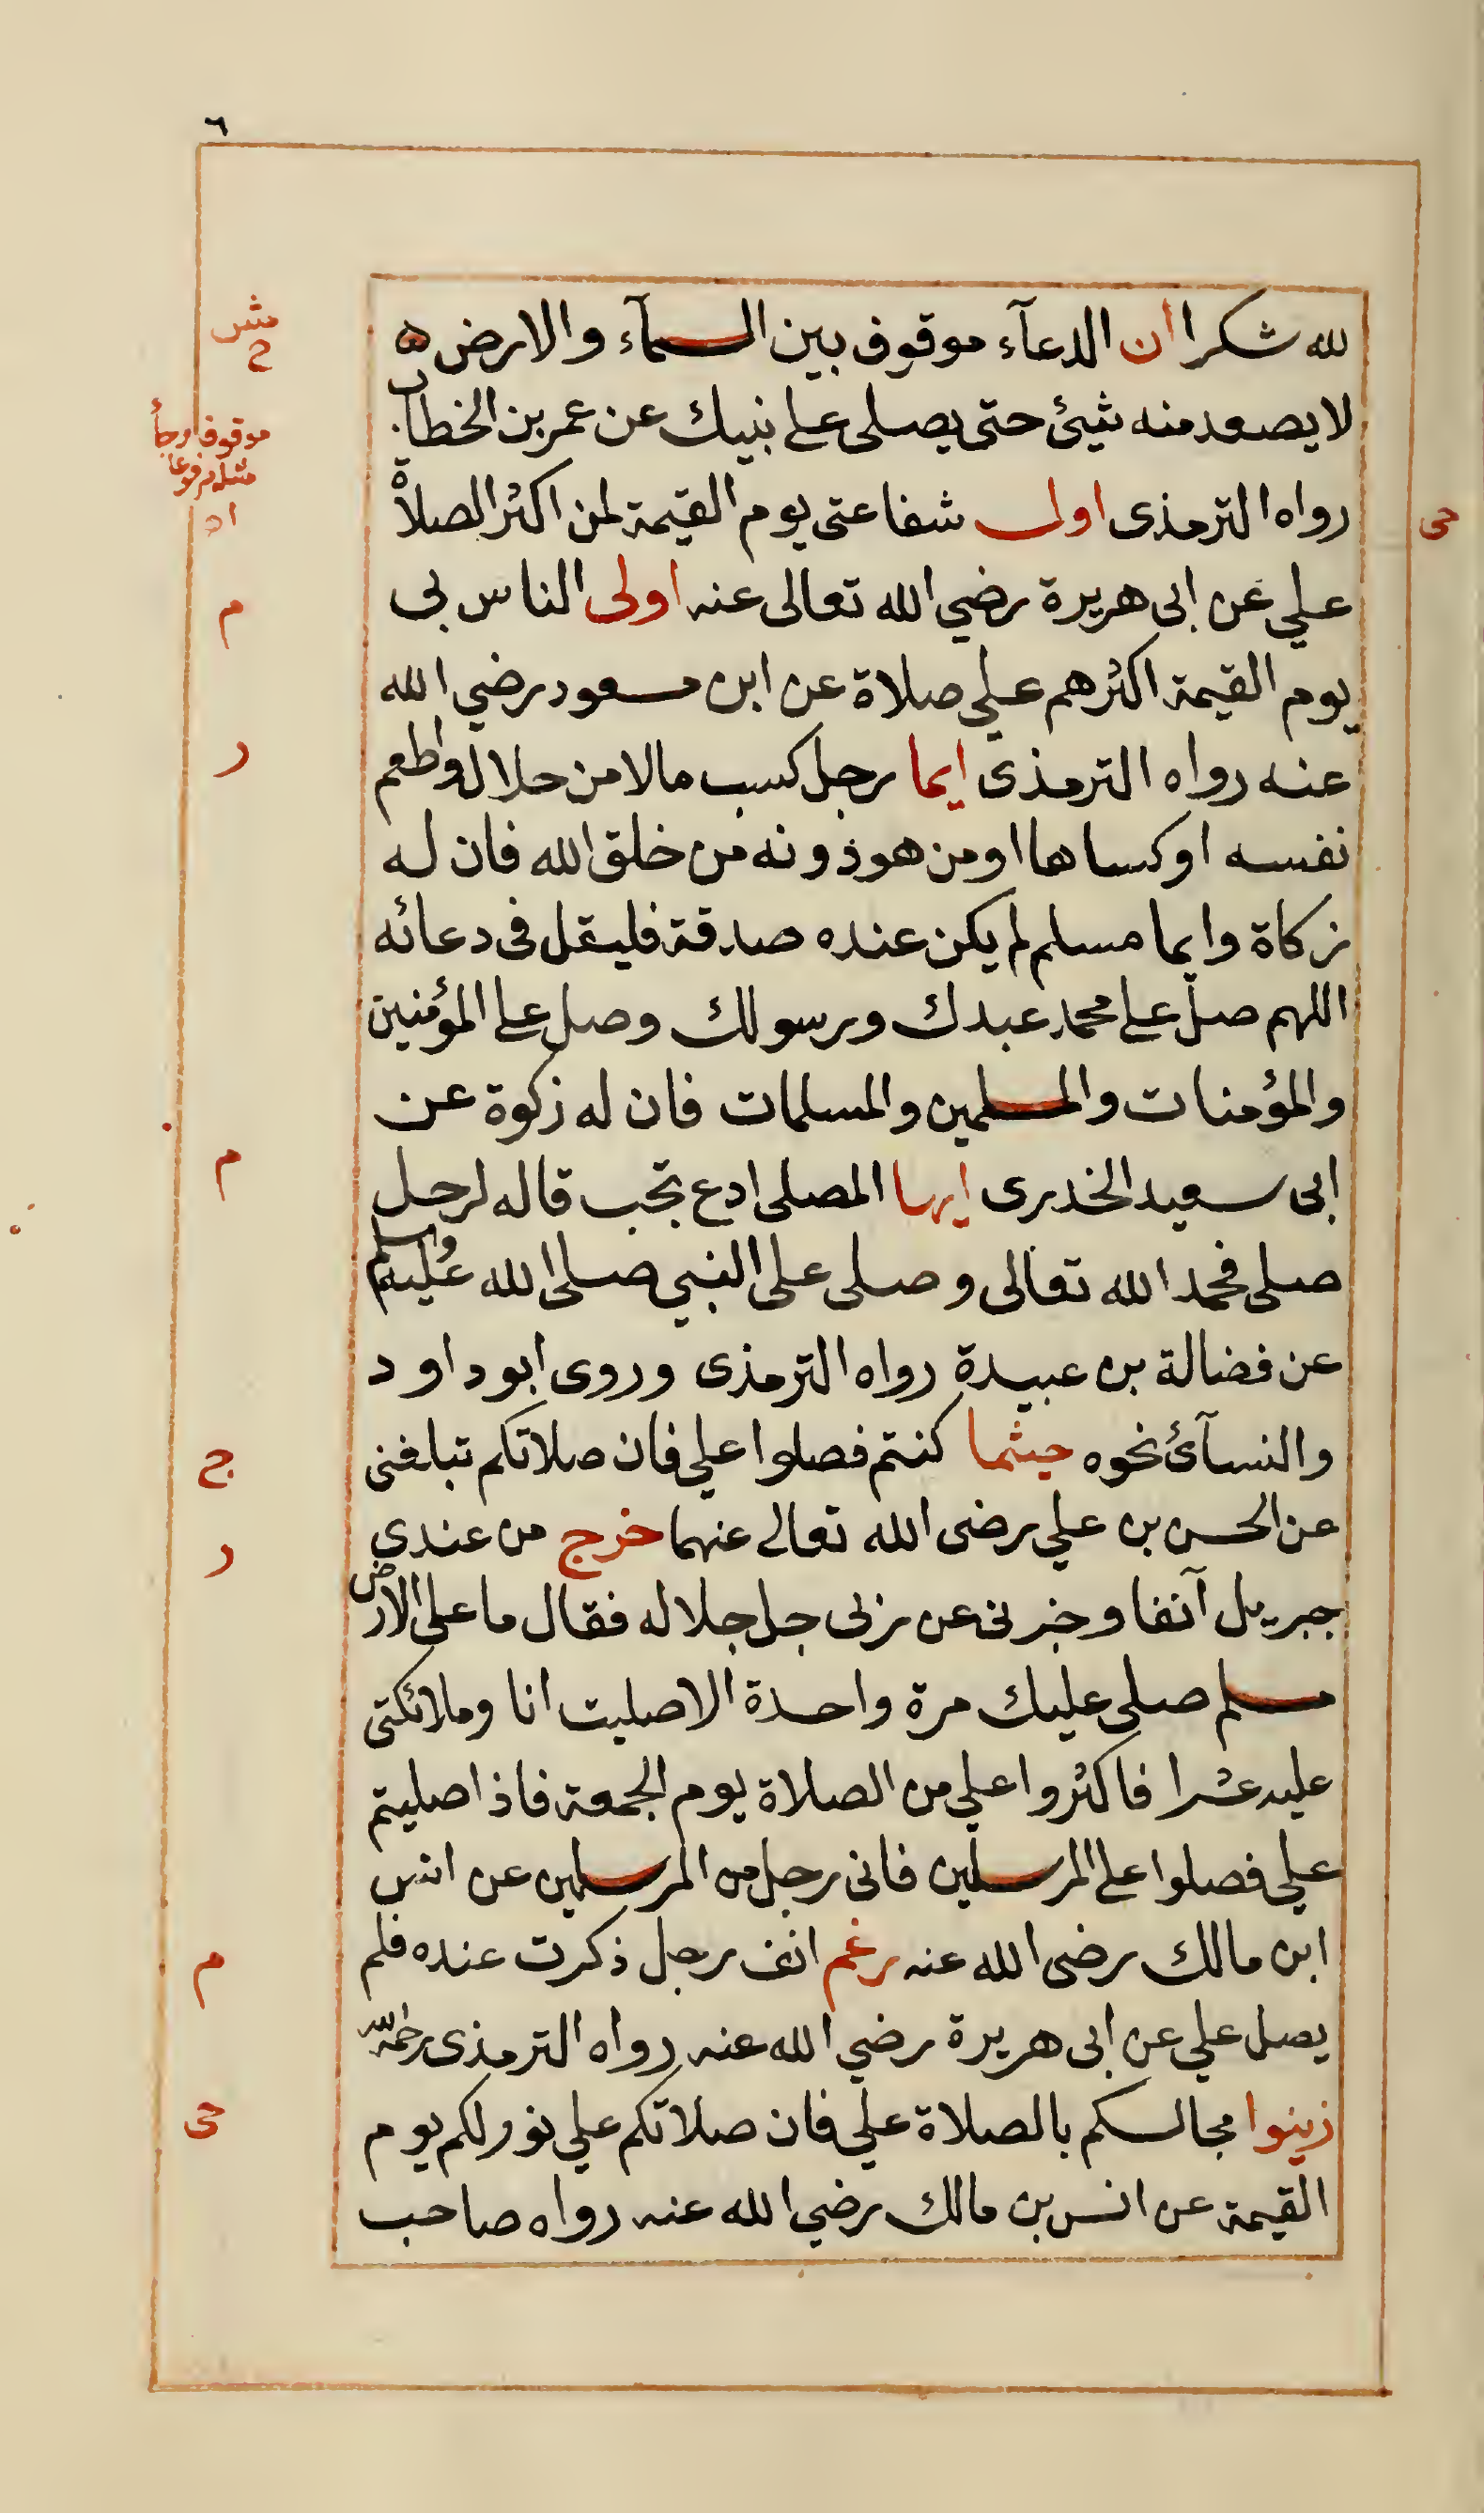 ٦
لله شكرا ان الدعآء موقوف بين السمآء والارض ه
لا يصعد منه شيئ حتى يصلى على نبيك عن عمر بن الخطاب
رواه الترمذى اولى شفاعتى يوم القيمة لمن اكثر الصلاة
علي عن ابى هريرة رضي الله تعالى عنه اولى الناس بى
يوم القيمة اكثرهم علي صلاة عن ابن مسعود رضي الله
عنه رواه الترمذى ايما رجل كسب مالا من حلال واطعم
نفسه او كساها او من هو دونه من خلق الله فان له
زكاة وايما مسلم لم يكن عنده صدقة فليقل فى دعائه
اللهم صل على محمد عبدك ورسولك وصل على المؤمنين
والمؤمنات والمسلمين والمسلمات فان له زكوة عن
ابى سعيد الخدرى ايها المصلى ادع تجب قاله لرجل
صلى فحمد الله تعالى وصلى على النبي صلى الله عليه وسلم
عن فضالة بن عبيدة رواه الترمذى وروى ابو داود
والنسآئ نحوه حيثما كنتم فصلوا علي فان صلاتكم تبلغنى
عن الحسن بن علي رضى الله تعالى عنهما خرج من عندي
جبريل آنفا وخبرنى عن ربى جل جلاله فقال ما على الارض
مسلم صلى عليك مرة واحدة الا صليت انا وملائكتى
عليه عشرا فاكثروا علي من الصلاة يوم الجمعة فاذا صليتم
علي فصلوا على المرسلين فانى رجل من المرسلين عن انس
ابن مالك رضى الله عنه رغم انف رجل ذكرت عنده فلم
يصل علي عن ابى هريرة رضي الله عنه رواه الترمذى رحمه الله
زينوا مجالسكم بالصلاة علي فان صلاتكم علي نور لكم يوم
القيمة عن انس بن مالك رضي الله عنه رواه صاحب
مش
موقوفا وجأ
مثله مرفوعا
اه
حى
م
ر
م
ج
ر
م
حى